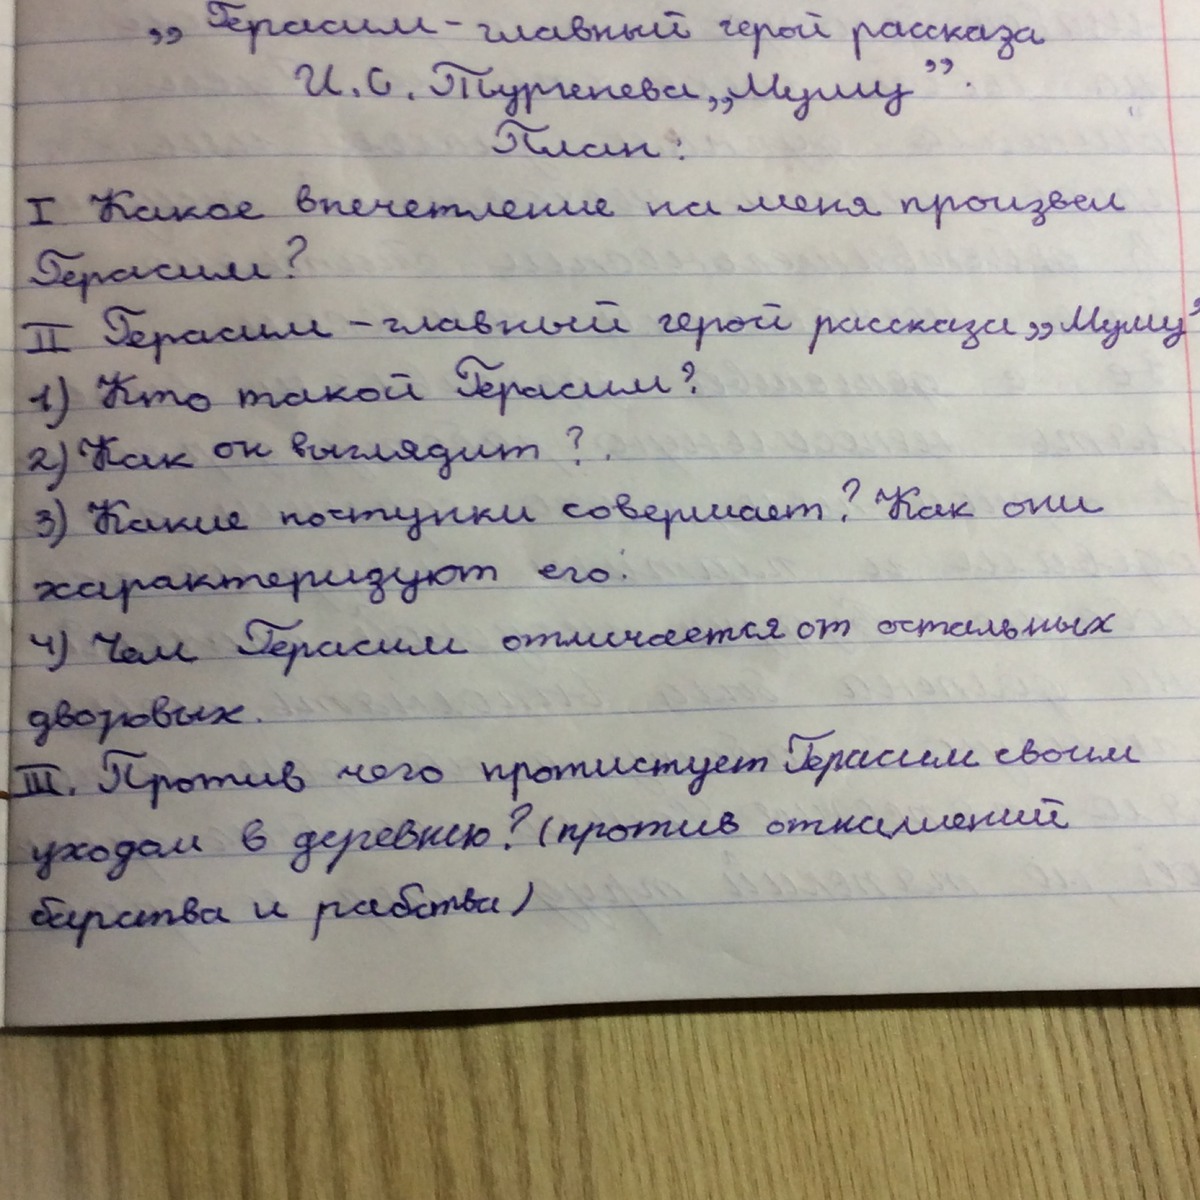 „Герасим - главный герой рассказа
И. С. Тургенева „Муму”.
План:
I Какое впечетление на меня произвел
Герасим?
II Герасим - главный герой рассказа „Муму”
1) Кто такой Герасим?
2) Как он выглядит?.
3) Какие поступки совершает? Как они
характеризуют его?
4) Чем Герасим отличается от остальных
дворовых.
III. Против чего протистует Герасим своим
уходом в деревню? (против отнашений
барства и рабства)